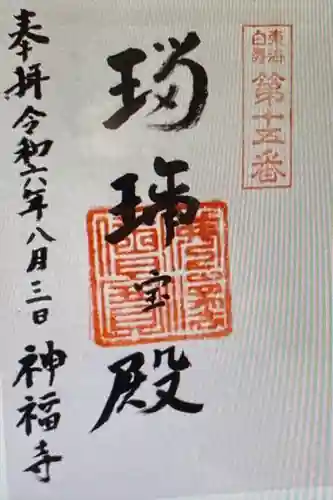 東海
白寿
第十五番
瑠璃宝殿
奉拝 令和六年八月三日
神福寺